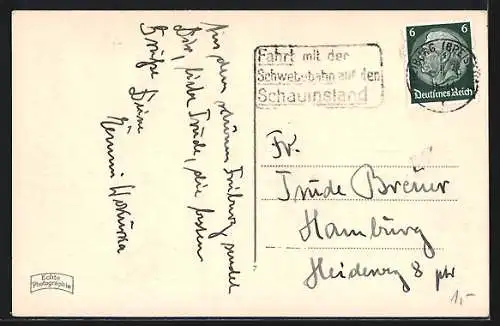 Aus dem schönen Freiburg sendet
Dir, liebe Trude, die besten
Grüße Deine
Fahrt mit der
Schwebebahn auf den
Schauinsland
6 6
Deutsches Reich
Fr.
Trude Breuer
Hamburg
Heideweg 8 ptr
Echte
Photographie
7
1,-